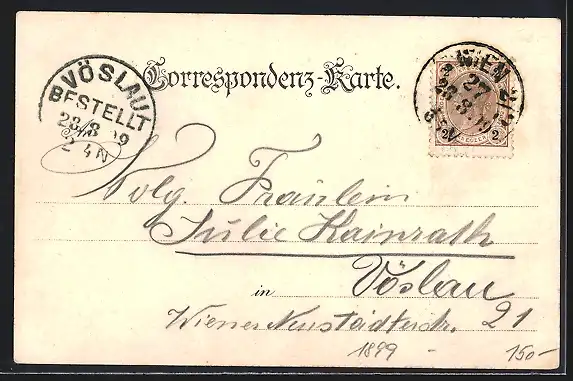 VÖSLAU
BESTELLT
23/8 99
2 4N
Correspondenz-Karte.
WIEN
23. 8. 99
2 2
Wolg. Fräulein
Julie Kainrath
in Vöslau
Wiener Neustädterstr. 21
1899
150-